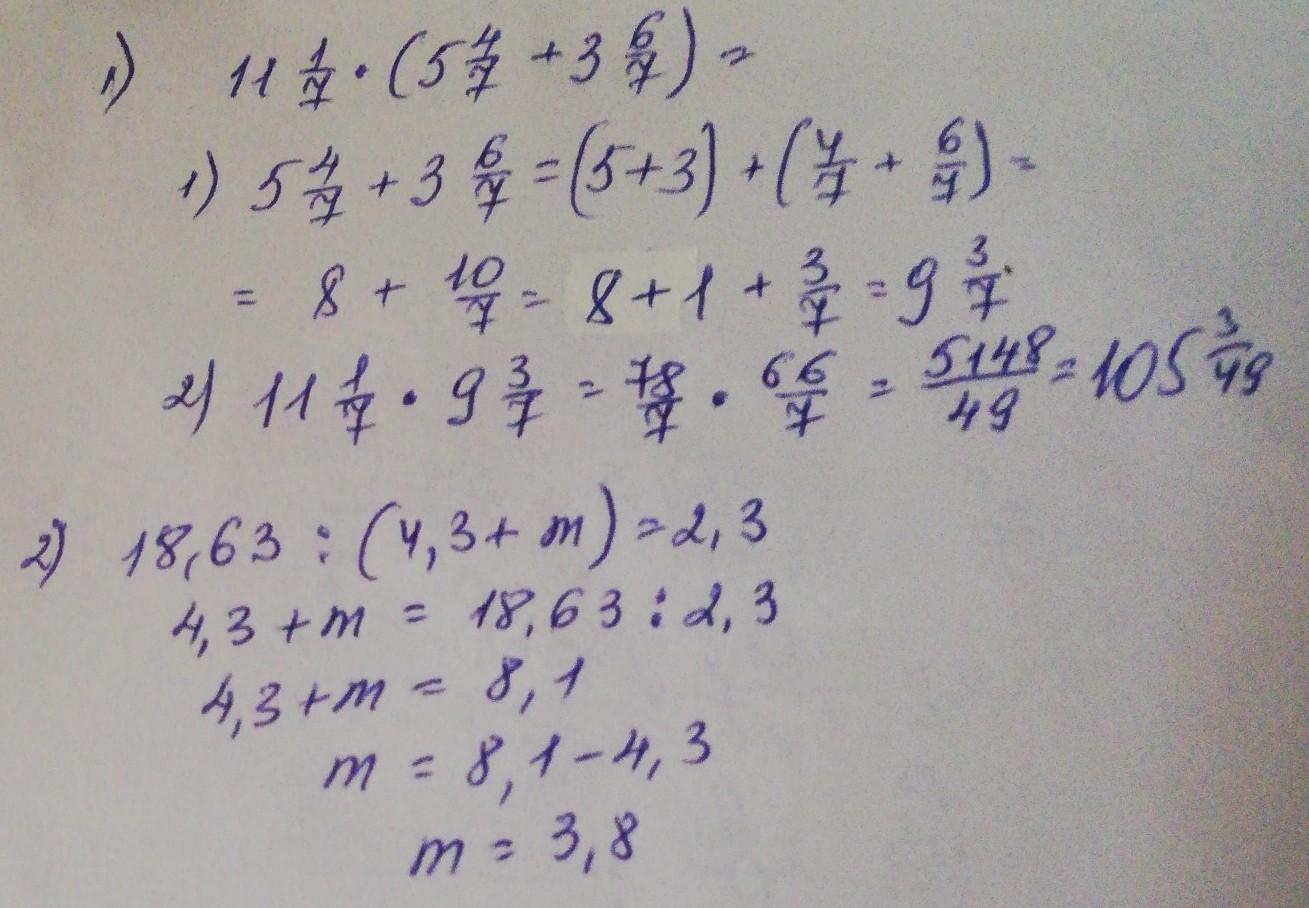 1) 11 1/7 · (5 4/7 + 3 6/7) =
1) 5 4/7 + 3 6/7 = (5+3) + (4/7 + 6/7) =
= 8 + 10/7 = 8 + 1 + 3/7 = 9 3/7.
2) 11 1/7 · 9 3/7 = 78/7 · 66/7 = 5148/49 = 105 3/49
2) 18,63 : (4,3 + m) = 2,3
4,3 + m = 18,63 : 2,3
4,3 + m = 8,1
m = 8,1 - 4,3
m = 3,8